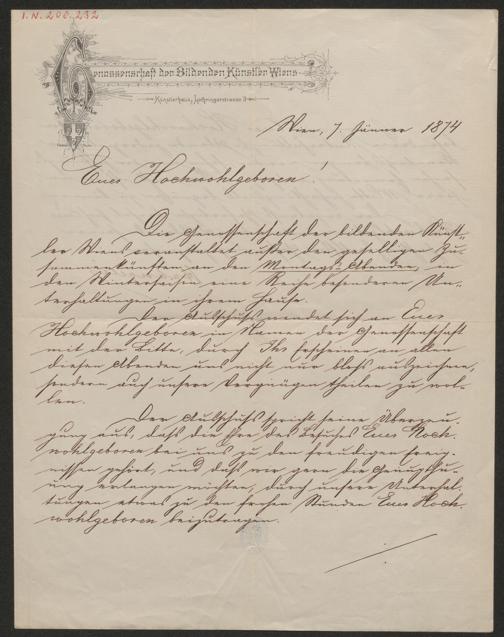 I.N. 208.232
Genossenschaft der Bildenden Künstler Wiens
Künstlerhaus, Lothringerstrasse 9
Wien, 7. Jänner 1874
Euer Hochwohlgeboren!
Die Genossenschaft der bildenden Künst-
ler Wiens veranstaltet außer den geselligen Zu-
sammenkünften an den Montags-Abenden, in
der Wintersaison eine Reihe besonderer Un-
terhaltungen in ihrem Hause.
Der Ausschuß wendet sich an Euer
Hochwohlgeboren im Namen der Genossenschaft
mit der Bitte, durch Ihr Erscheinen an allen
diesen Abenden uns nicht nur bloß auszeichnen,
sondern auch unsere Vergnügen theilen zu wol-
len.
Der Ausschuß spricht seine Überzeu-
gung aus, daß die Ehre des Besuches Euer Hoch-
wohlgeboren bei uns zu den freudigen Ereig-
nissen gehört, und daß wir gern die Genugthu-
ung erlangen möchten, durch unsere Unterhal-
tungen etwas zu den frohen Stunden Euer Hoch-
wohlgeboren beizutragen.